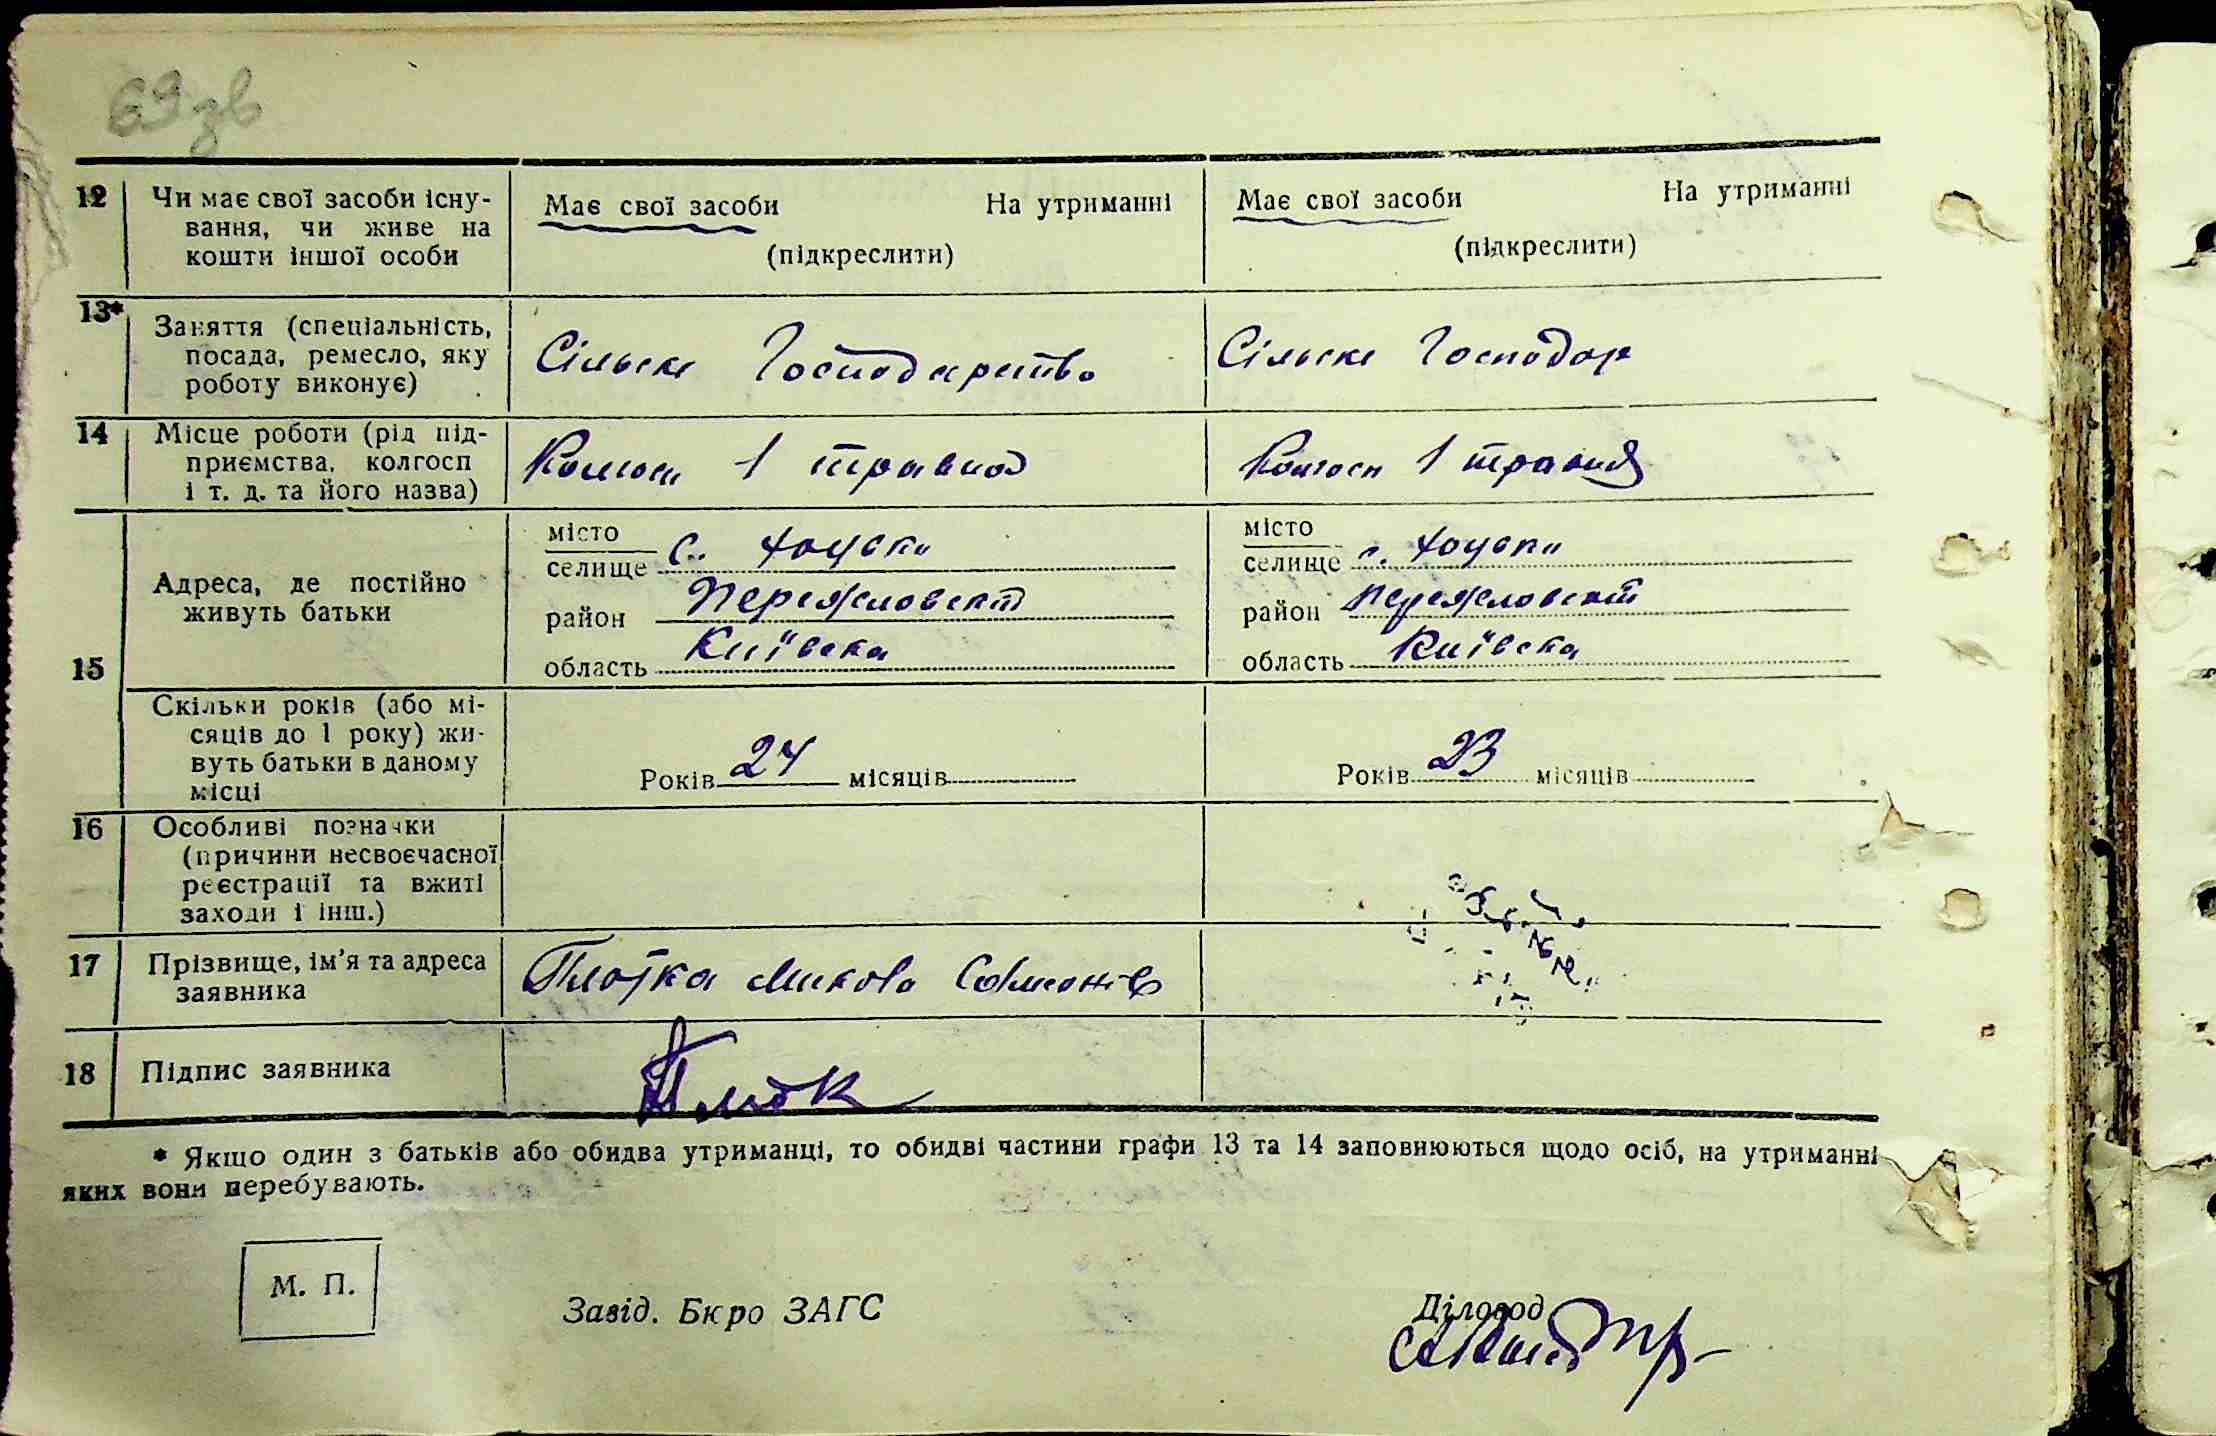 69 зв
12 Чи має свої засоби існу- Має свої засоби На утриманні Має свої засоби На утриманні
вання, чи живе на
кошти іншої особи (підкреслити) (підкреслити)
13* Заняття (спеціальність,
посада, ремесло, яку Сільске Господарство Сільске Господар
роботу виконує)
14 Місце роботи (рід під-
приємства, колгосп Колгосп 1 травня Колгосп 1 травня
і т. д. та його назва)
місто місто
селище с. Хоцьки селище с. Хоцьки
15 Адреса, де постійно
живуть батьки район район
область Київска область Київска
Скільки років (або мі-
сяців до 1 року) жи-
вуть батьки в даному Років 24 місяців Років 23 місяців
місці
16 Особливі позначки
(причини несвоєчасної
реєстрації та вжиті
заходи і інш.)
17 Прізвище, ім'я та адреса Микола
заявника
18 Підпис заявника
* Якщо один з батьків або обидва утриманці, то обидві частини графи 13 та 14 заповнюються щодо осіб, на утриманні
яких вони перебувають.
М. П.
Завід. Бюро ЗАГС Діловод